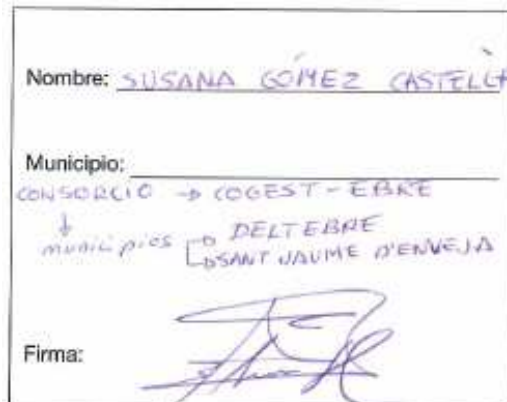 Nombre: SUSANA GÓMEZ CASTELLÀ
Municipio:
CONSORCIO → COGEST-EBRE
↓
municipios → DELTEBRE
→ SANT JAUME D'ENVEJA
Firma: